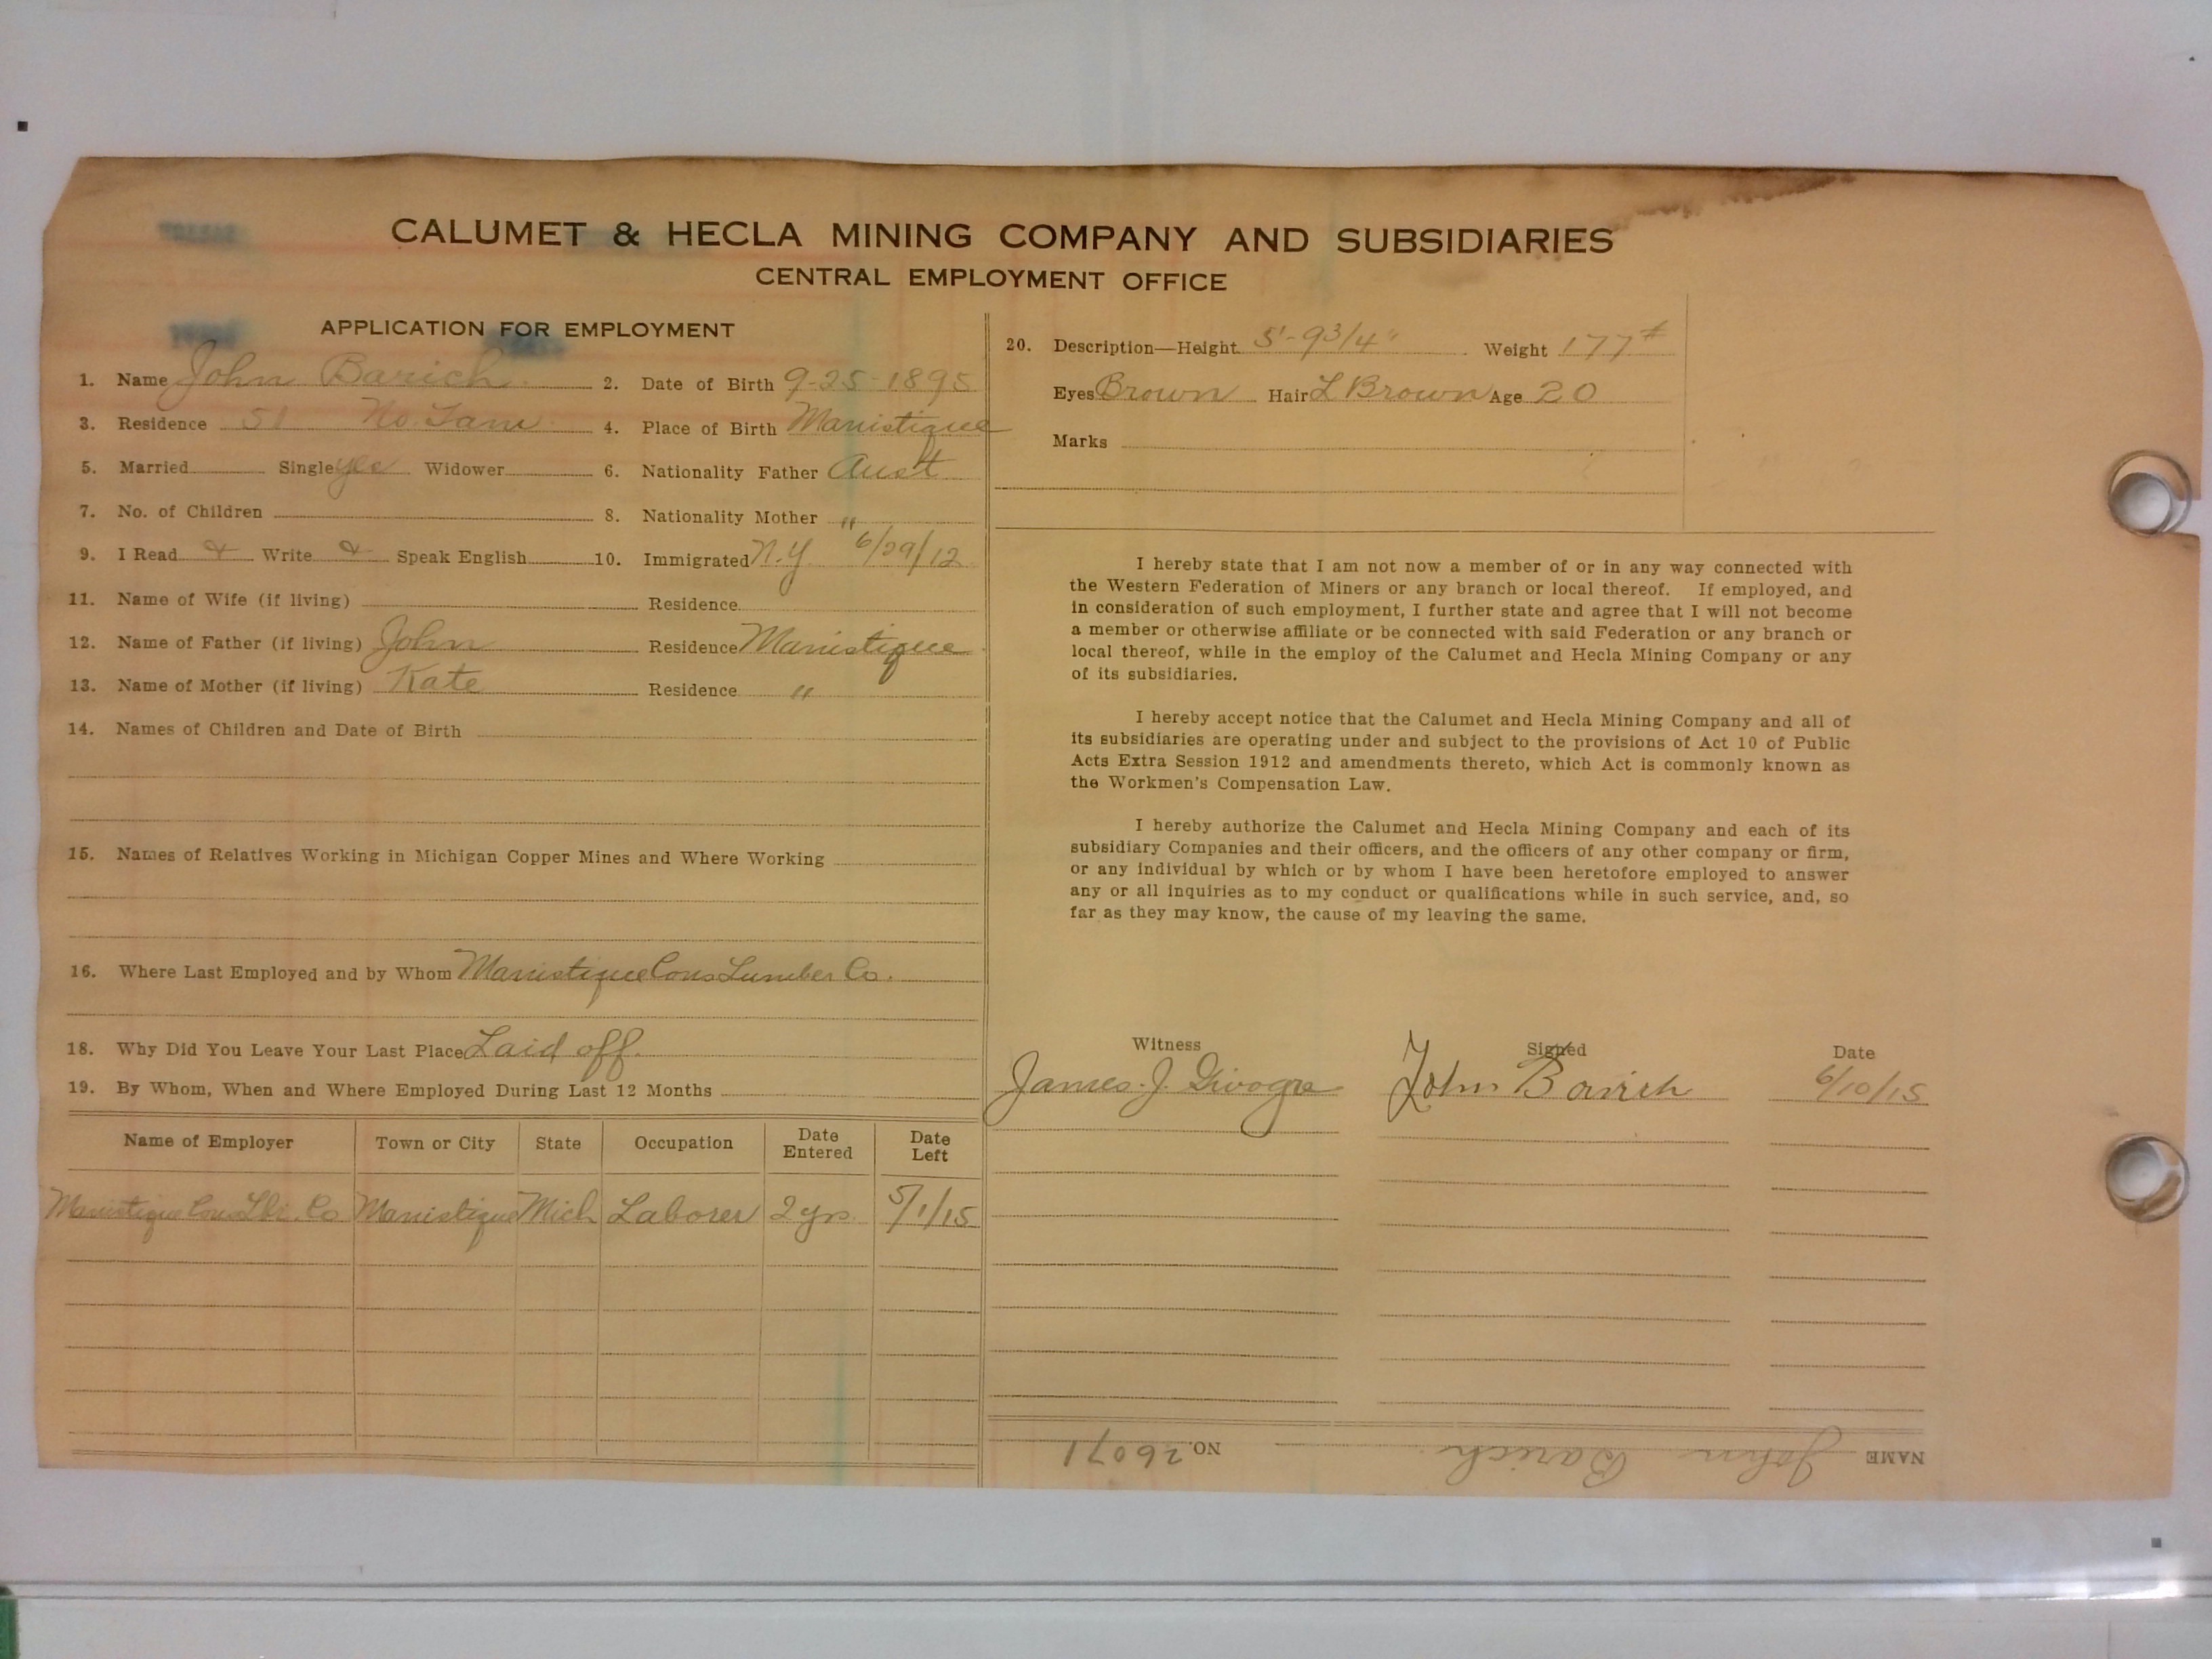 CALUMET & HECLA MINING COMPANY AND SUBSIDIARIES
CENTRAL EMPLOYMENT OFFICE
APPLICATION FOR EMPLOYMENT
1. Name John Barich 2. Date of Birth 9-25-1895
3. Residence 51 No. 4. Place of Birth Manistique
5. Married Single yes Widower 6. Nationality Father Aust
7. No. of Children 8. Nationality Mother "
9. I Read & Write & Speak English 10. Immigrated N.Y. 6/29/12
11. Name of Wife (if living) Residence
12. Name of Father (if living) John Residence Manistique
13. Name of Mother (if living) Kate Residence "
14. Names of Children and Date of Birth
15. Names of Relatives Working in Michigan Copper Mines and Where Working
16. Where Last Employed and by Whom Manistique Cons Lumber Co.
18. Why Did You Leave Your Last Place Laid off.
19. By Whom, When and Where Employed During Last 12 Months
Name of Employer Town or City State Occupation Date Entered Date Left
Manistique Cons Lbr. Co Manistique Mich Laborer 2 yrs 5/1/15
20. Description—Height 5'-9 3/4" Weight 177#
Eyes Brown Hair L Brown Age 20
Marks
I hereby state that I am not now a member of or in any way connected with
the Western Federation of Miners or any branch or local thereof. If employed, and
in consideration of such employment, I further state and agree that I will not become
a member or otherwise affiliate or be connected with said Federation or any branch or
local thereof, while in the employ of the Calumet and Hecla Mining Company or any
of its subsidiaries.
I hereby accept notice that the Calumet and Hecla Mining Company and all of
its subsidiaries are operating under and subject to the provisions of Act 10 of Public
Acts Extra Session 1912 and amendments thereto, which Act is commonly known as
the Workmen's Compensation Law.
I hereby authorize the Calumet and Hecla Mining Company and each of its
subsidiary Companies and their officers, and the officers of any other company or firm,
or any individual by which or by whom I have been heretofore employed to answer
any or all inquiries as to my conduct or qualifications while in such service, and, so
far as they may know, the cause of my leaving the same.
Witness Signed Date
James J. John Barich 6/10/15
NAME John Barich NO. 26071